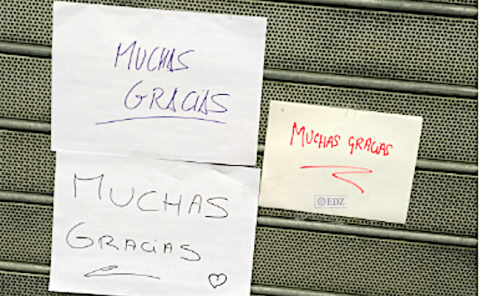 MUCHAS
GRACIAS
MUCHAS GRACIAS
@EDZ
MUCHAS
GRACIAS